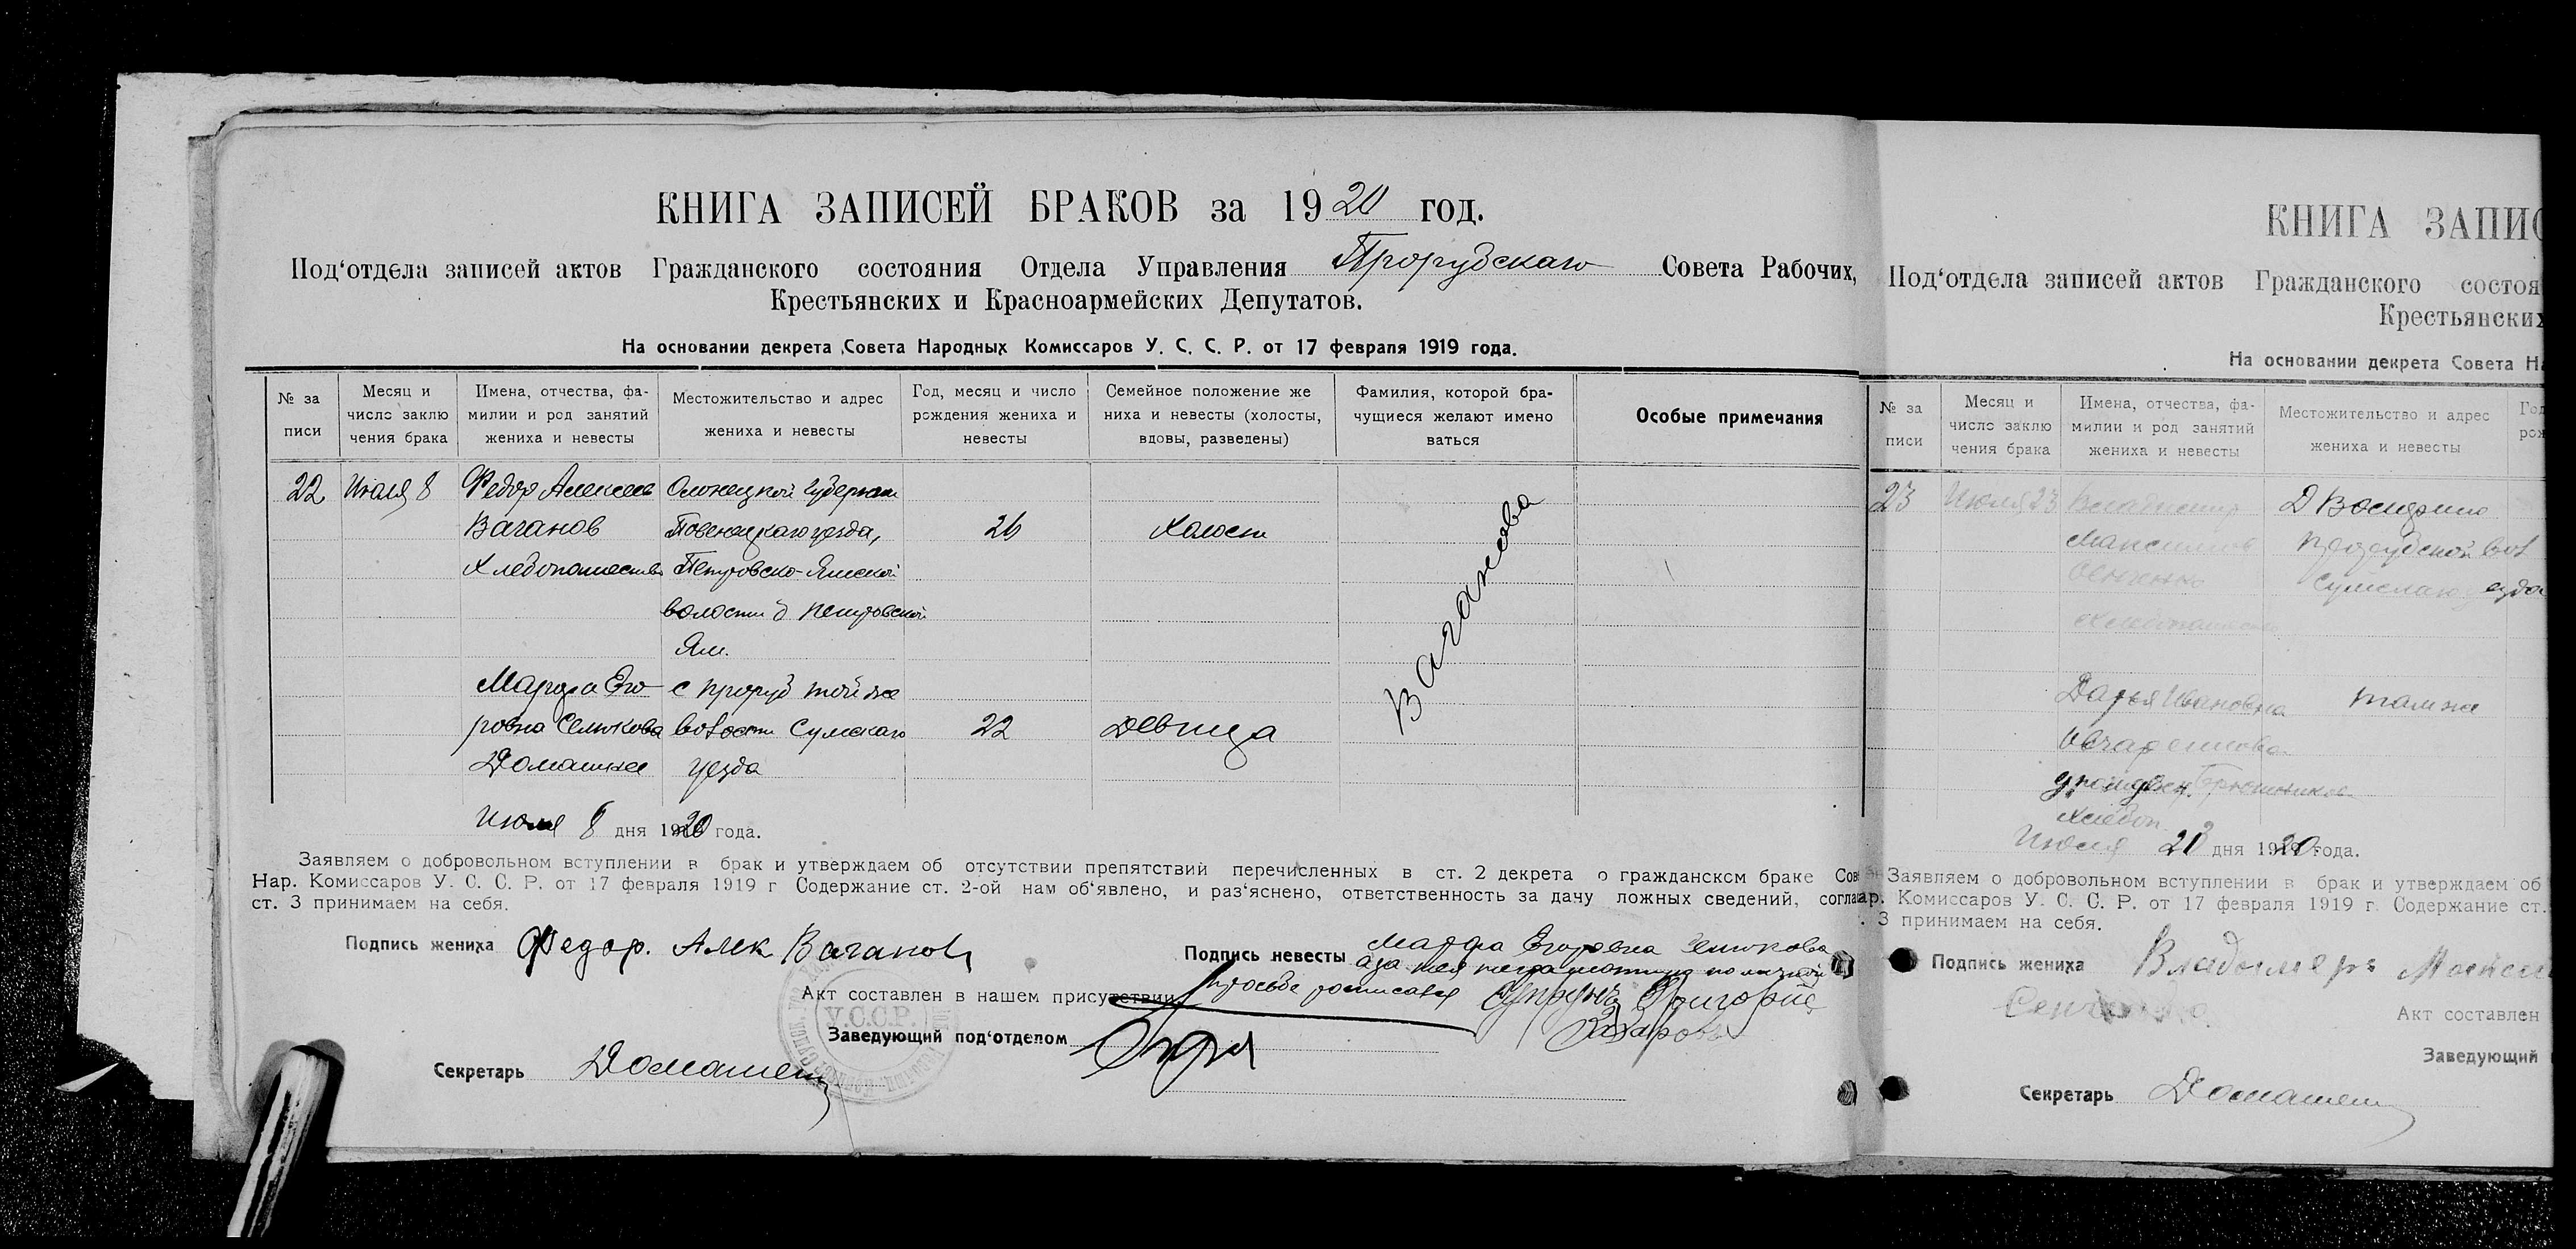 КНИГА ЗАПИСЕЙ БРАКОВ за 1920 год.
Под‘отдела записей актов Гражданского состояния Отдела Управления Прорубскаго Совета Рабочих,
Крестьянских и Красноармейских Депутатов.
На основании декрета Совета Народных Комиссаров У. С. С. Р. от 17 февраля 1919 года.
№ за писи
Месяц и число заклю чения брака
Имена, отчества, фа- милии и род занятий жениха и невесты
Местожительство и адрес жениха и невесты
Год, месяц и число рождения жениха и невесты
Семейное положение же ниха и невесты (холосты, вдовы, разведены)
Фамилия, которой бра- чущиеся желают имено ваться
Особые примечания
22 Июля 8 Федор Алексеев Олонецкой Губернии
Ваганов Повенецкаго уезда, 26 Холост
Хлебопашество Петровско-Ямской
волости д Петровской
Ям.
Ваганова
Марфа Его- с Проруб той же
ровна Селюкова волости Сумскаго 22 Девица
Домашнее уезда
Июля 8 дня 1920 года.
Заявляем о добровольном вступлении в брак и утверждаем об отсутствии препятствий перечисленных в ст. 2 декрета о гражданском браке Сов
Нар. Комиссаров У. С. С. Р. от 17 февраля 1919 г Содержание ст. 2-ой нам об‘явлено, и раз‘яснено, ответственность за дачу ложных сведений, согла
ст. 3 принимаем на себя.
Подпись жениха Федор. Алек Ваганов
Подпись невесты Марфа Егоровна Селюкова
а за нея неграмотную по личной
просьбе росписался Супрунъ Григорий
Захаровъ
Акт составлен в нашем присутствии
У.С.С.Р.
Заведующий под‘отделом
Секретарь Домашенко
КНИГА ЗАПИС
Под‘отдела записей актов Гражданского состоя
Крестьянских
На основании декрета Совета Н
№ за писи
Месяц и число заклю чения брака
Имена, отчества, фа- милии и род занятий жениха и невесты
Местожительство и адрес жениха и невесты
Год
рож
23 Июля 23 Владимир Д
Максимов Прорубской вол
Сенченко Сумскаго уезда
Хлебопашество
Дарья Ивановна там же
Июля 23 дня 1920 года.
Заявляем о добровольном вступлении в брак и утверждаем об
ар. Комиссаров У. С. С. Р. от 17 февраля 1919 г. Содержание ст.
. 3 принимаем на себя.
Подпись жениха Владимеръ
Сенченко
Акт составлен
Заведующий
Секретарь Домашенко